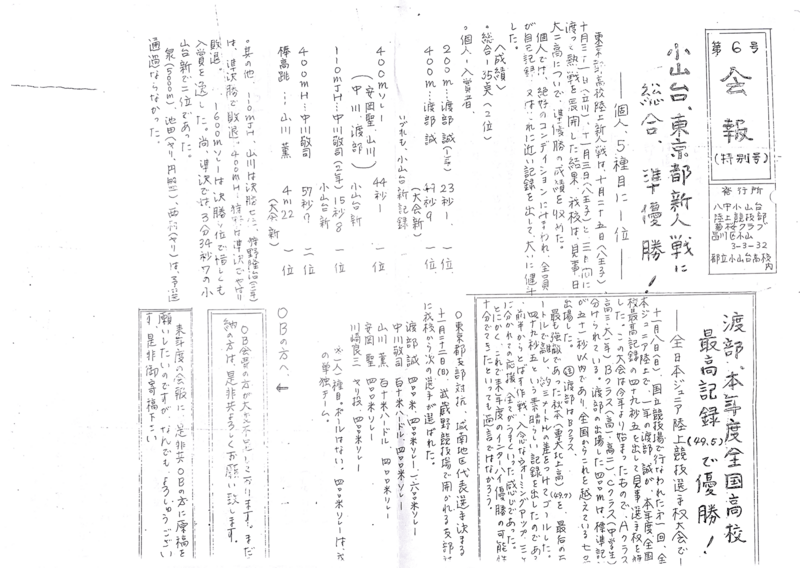 第6号
会報
(特別号)
発行所
八中小山台
陸上競技部
菊桜クラブ
品川区小山
3-3-32
都立小山台高校内
小山台、東京都新人戦に
総合、準優勝!
──個人、5種目に1位──
東京都高校陸上新人戦は、十月二十五日(八王子)
十月三十一日(立川)、十一月三日(八王子)と三日間に
渡って熱戦を展開した結果、我校は、見事日
大二高について、準優勝の成績を収めた。
個人では、絶好のコンディションにめぐまれ、全員
が自己記録、又は、それに近い記録を出して大いに健斗
した。
〈成績〉
・総合─35点(2位)
・個人・入賞者
200m…渡部 誠(1年) 23秒1 一位
400m…渡部 誠 49秒9 一位
(大会新)
いづれも、小山台新記録
400mリレー 44秒1 一位
(安岡聖、山川
中川、渡部) 小山台新
110mJH…中川敬司(2年) 15秒8 一位
小山台新
400mH…中川敬司 57秒7 二位
棒高跳…山川 薫 4m22 一位
(大会新)
・其の他、110mJH、山川は決勝
は、準決勝で敗退、400mH、
敗退。1600mリレーは決勝
入賞を逸した。尚、準決では3分34秒7の小
山台新で二位であった。
泉(5000m)池田(ヤリ、円盤)、西村(ヤリ)は、予選
通過ならなかった。
渡部、本年度全国高校
最高記録(49.5)で優勝!
─全日本ジュニア陸上競技選手権大会で─
十一月八日(日)、国立競技場で行なわれた第一回、全日
本ジュニア陸上で、一年の渡部 誠が、本年度、全国
高校最高記録の四十九秒五を出して見事選手権を獲得
した。この大会は今年より始まったもので、Aクラス
(高三、大一年)Bクラス(高一、高二)、Cクラス(中学生)に
分けられている。渡部の出場した四〇〇mは、標準記録
が五十一秒以内であり、全国からこれを越えている七〇名
出場した。渡部はBクラス
最も強敵であった秋本(専大北上高)(49.9)を、最後の
ートルで離し、約三メートルの差をつけてゴールした。
四十九秒五という素晴らしい記録を出したのであった。
前半からとばす作戦、入念なウォーミングアップ、三
に分かれての応援、全てがうまくいった感じであった。
とにかく、これで来年度のインターハイ優勝の可能性
十分でてきたといっても過言ではなかろう。
〇東京都支部対抗、城南地区代表選手決まる
十一月二十二日(日)、武蔵野競技場で開かれる支部対
に我校から次の選手が選ばれた。
渡部 誠 四〇〇米、四〇〇米リレー、一六〇〇米リレー
中川敬司 百十米ハードル、四〇〇米リレー
山川 薫 百十米ハードル、四〇〇米リレー
安岡 聖 四〇〇米リレー
川崎良三 やり投 四〇〇米リレー
※一人一種目。ボールはない。四〇〇米リレーは、我
の単独チーム。
OBの方へ
OB会費の方が大分
納の方は、是非共よろしくお願い致します。
来年度の会報に、是非共OBの方に原稿を
願いしたいのですが、なんでも、よろしゅうござい
す。是非御寄稿下さい。